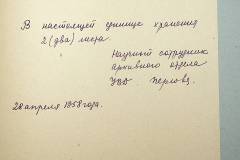 В настоящей единице хранения
2 (два) листа
Научный сотрудник
архивного отдела
УВД
28 апреля 1958 года.